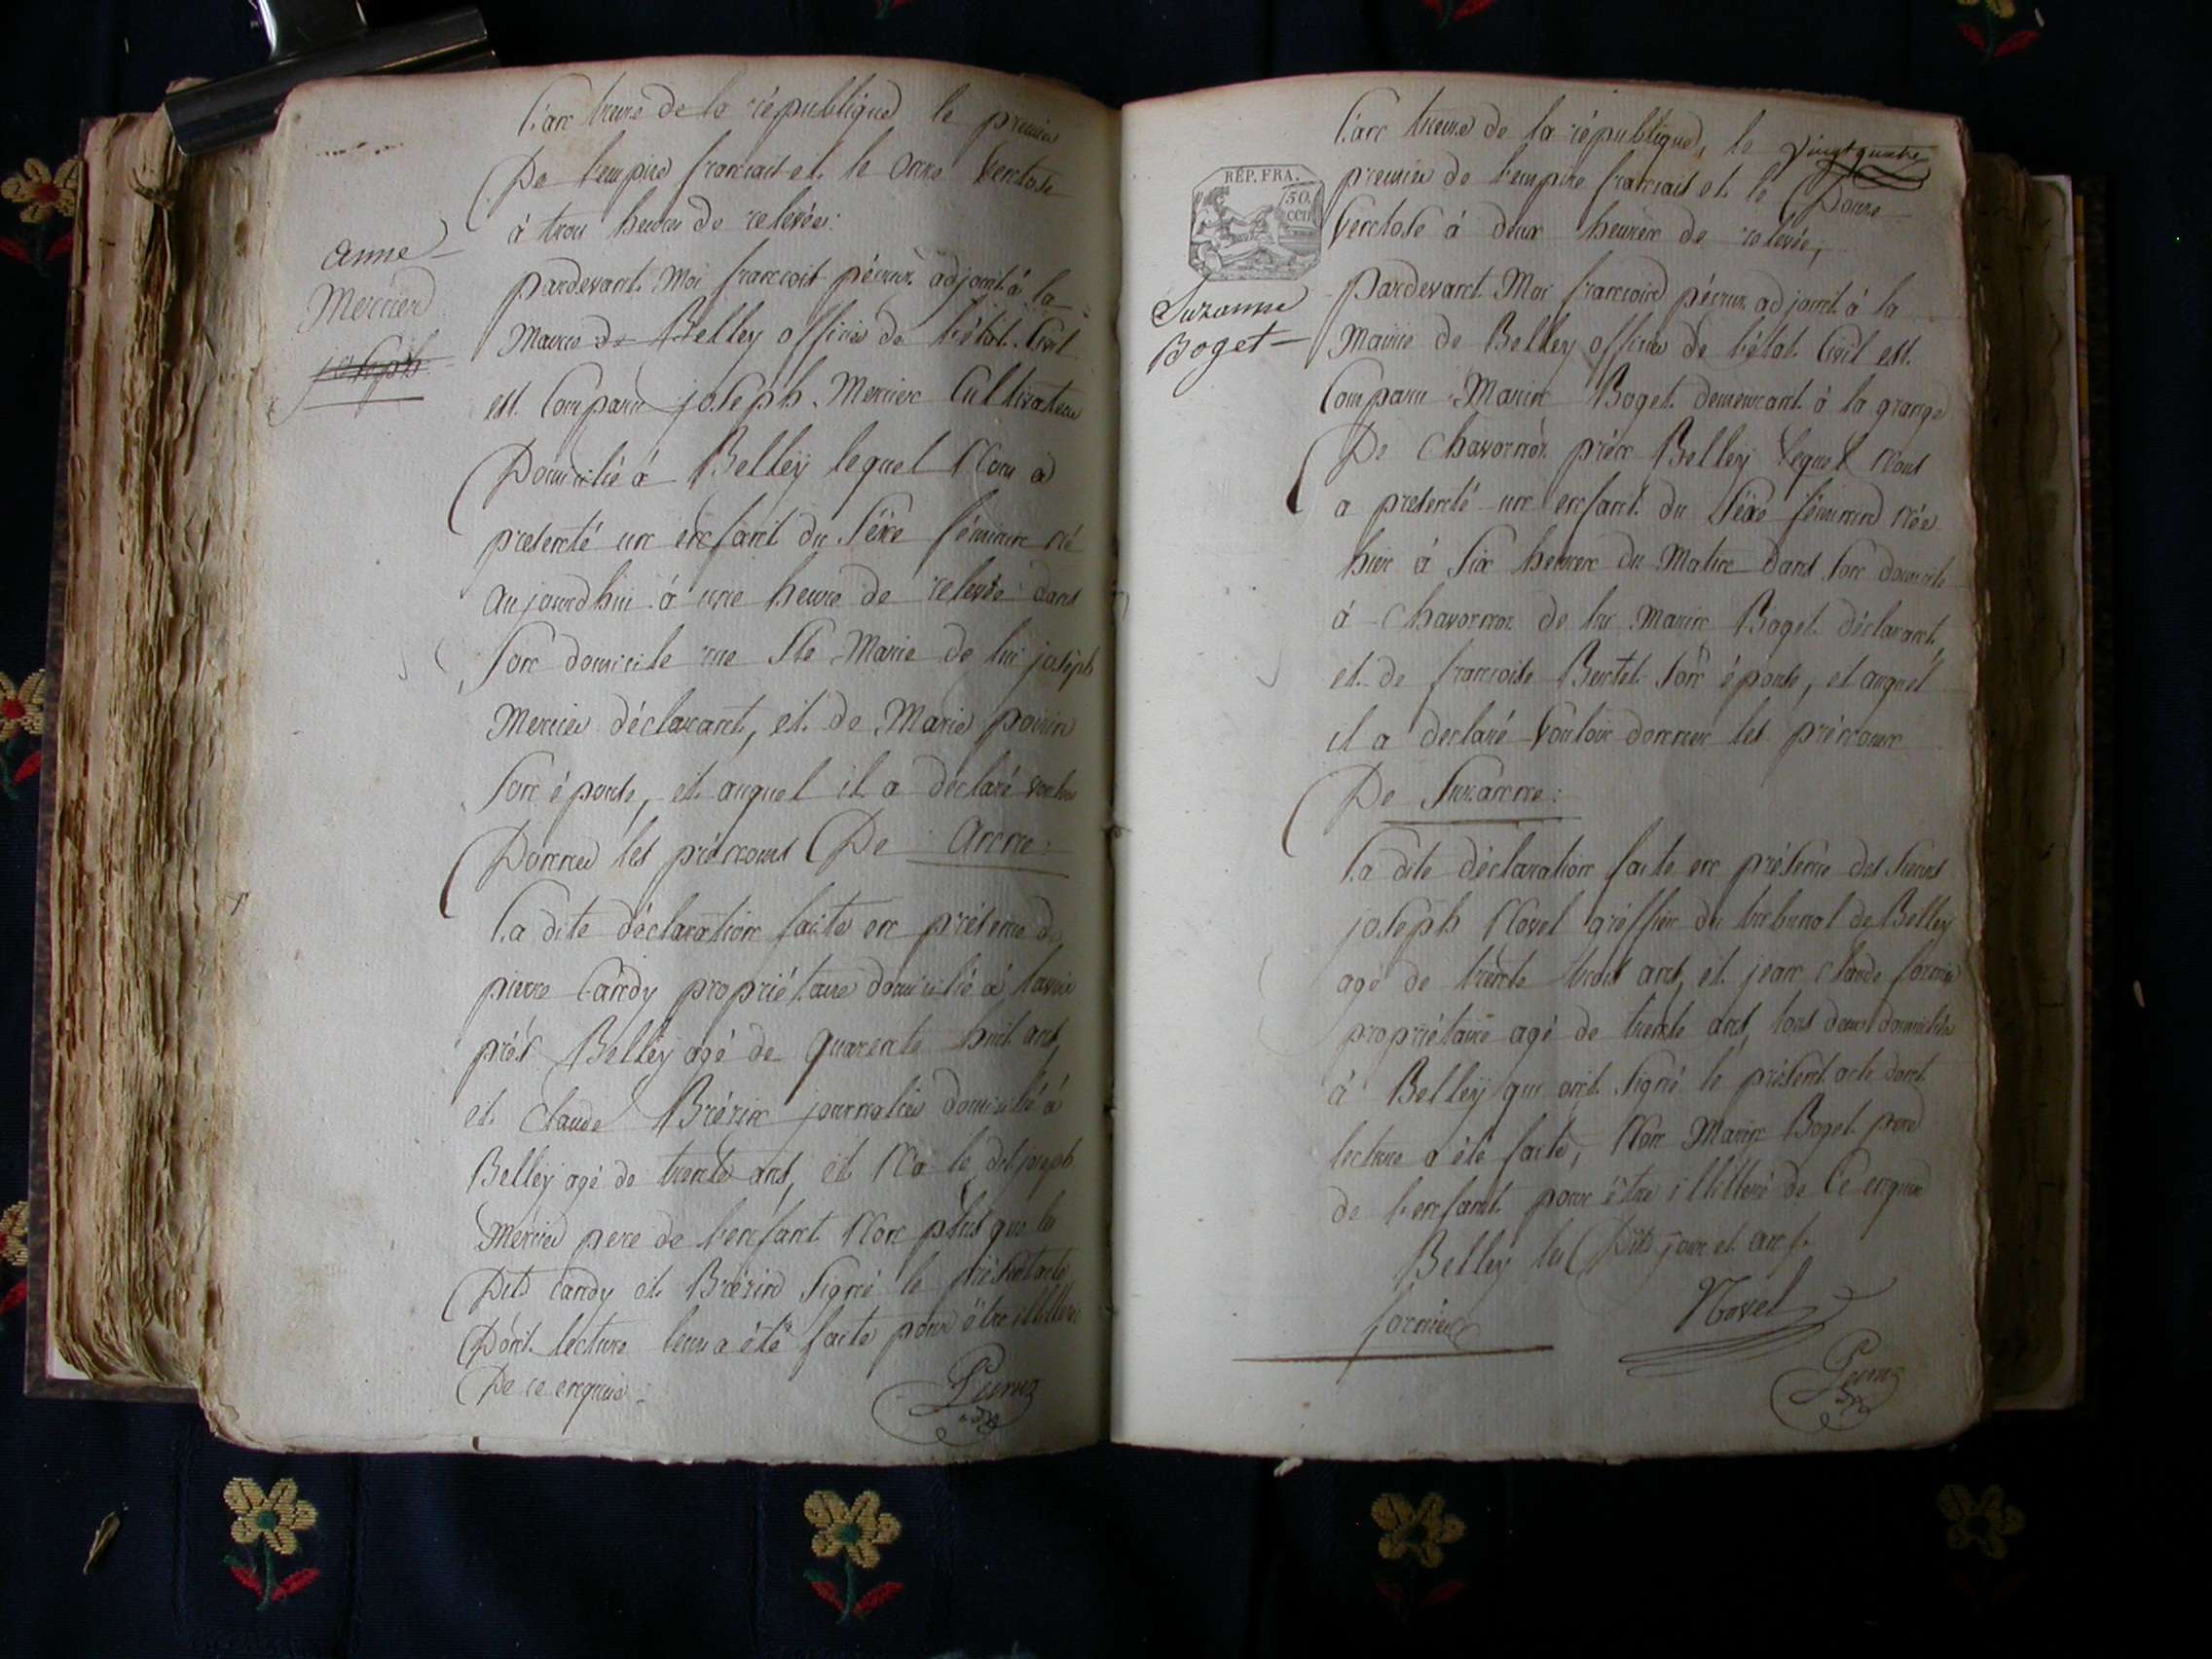 L'an treize de la république le premier
De l'empire français et le onze Ventose
à trois heures de relevée:
anne
Mercier
joseph
pardevant Moi françois péernz adjoint à la
Mairie de Belley officier de l'état Civil
est Comparu joseph Mercier Cultivateur
Domicilié à Belley lequel Nous a
presenté un enfant du Séxe féminin né
aujourdhui à une heure de relevée dans
Son domicile rue Ste Marie de lui joseph
Mercier déclarant, et de Marie
Son épouse, et auquel il a déclaré vouloir
Donner les prénoms De Anne:
La dite déclaration faite en présence de
pierre Candy propriétaire domicilié à
près Belley agé de quarente huit ans,
et Claude Brézin journalier domicilié à
Belley agé de trente ans, et Na le dit joseph
Mercier pere de l'enfant Non plus que les
Dits Candy et Brézin Signé le présent acte
Dont lecture leur a été faite pour être illitteré
De ce enquis:
L'an treize de la république, le vingt quatre
premier de l'empire français et le Douze
REP. FRA.
50.
cen
Ventose à deux heures de relevée,
Suzanne
Boget
Pardevant Moi françois péernz adjoint à la
Mairie de Belley officier de l'état Civil est
Comparu Marin Boget demeurant à la grange
De Chavornoz près Belley lequel Nous
a presenté un enfant du Séxe féminin née
hier à Six heures du Matin dans Son domicile
à Chavornoz de lui Marin Boget déclarant,
et de françoise Bertet Son épouse, et auquel
il a declaré Vouloir donner les prénoms
De Suzanne:
La dite déclaration faite en présence des Sieurs
joseph Novel gréffier du tribunal de Belley
agé de trente trois ans, et jean Claude fornier
propriétaire agé de trente ans, tous deux domiciliés
à Belley qui ont Signé le présent acte dont
lecture a été faite, Non Marin Boget pere
de l'enfant pour être illitteré de Ce enquis
Belley les Dits jour et an.
fornier
Novel